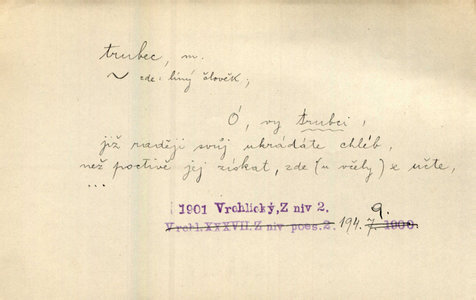 trubec, m.
~ zde: líný člověk;
Ó, vy trubci,
již raději svůj ukrádáte chléb,
než poctivě jej získat, zde (u včely) se učte,
...
1901 Vrchlický, Z niv 2. 9.
Vrchl. XXXVII. Z niv poes. 2. 194. 7. 1900.